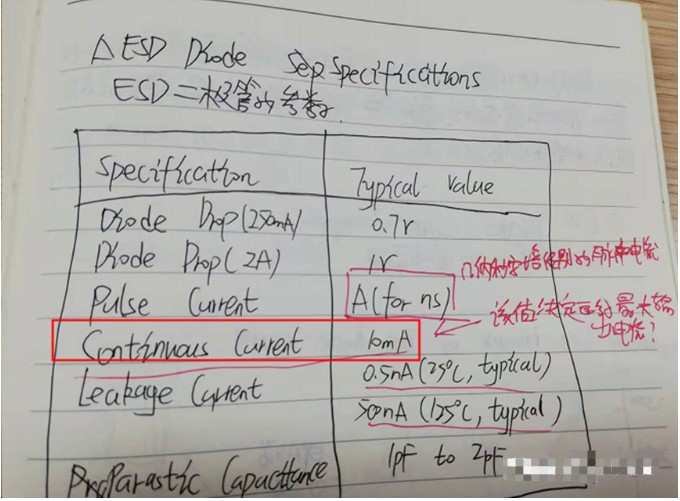 △ ESD Diode Sep Specifications
ESD二极管的参数.
Specification Typical Value
Diode Drop(250mA) 0.7V
Diode Drop(2A) 1V
Pulse Current A(for ns)
几纳秒安培级别的脉冲电流
Continuous Current 10mA
该值决定了最大输
出电流?
Leakage Current 0.5nA(25°C, typical)
500nA(125°C, typical)
Parastic Capacitance 1pF to 2pF